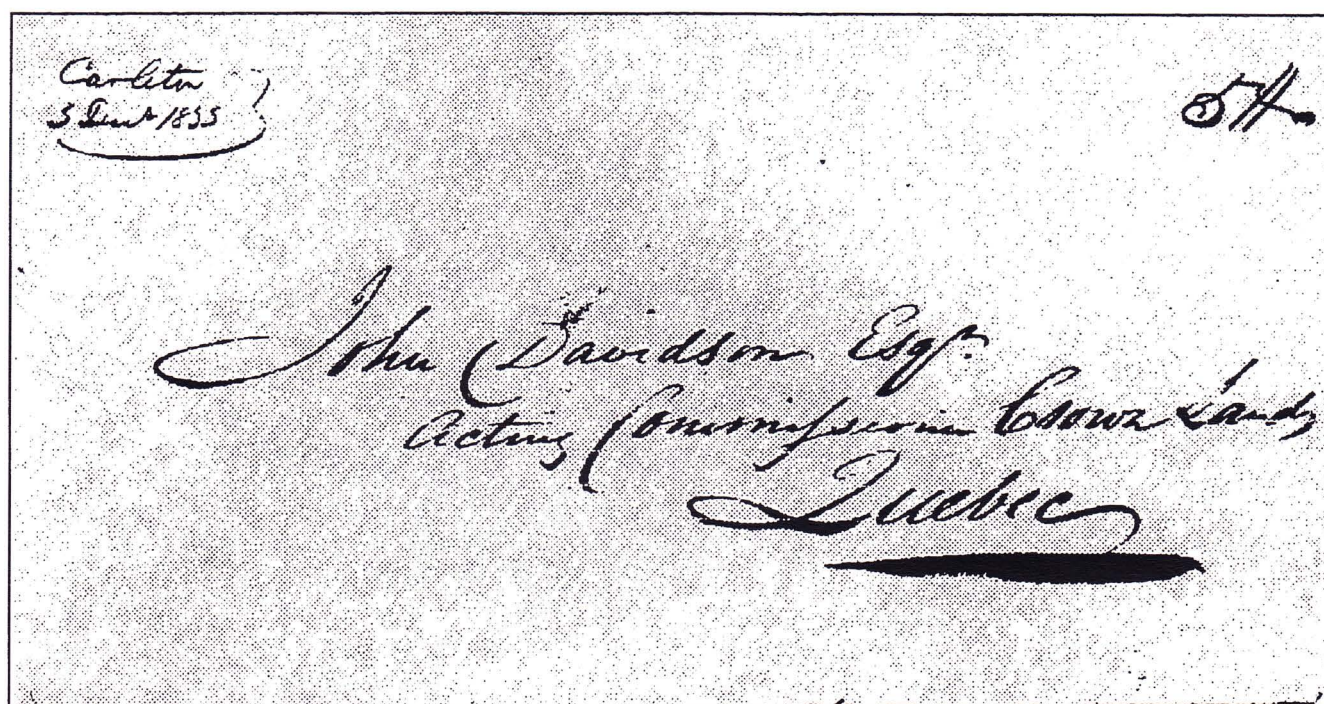 Carleton
3 Decr 1835
John Davidson Esqr.
Acting Commissioner Crown Lands
Quebec